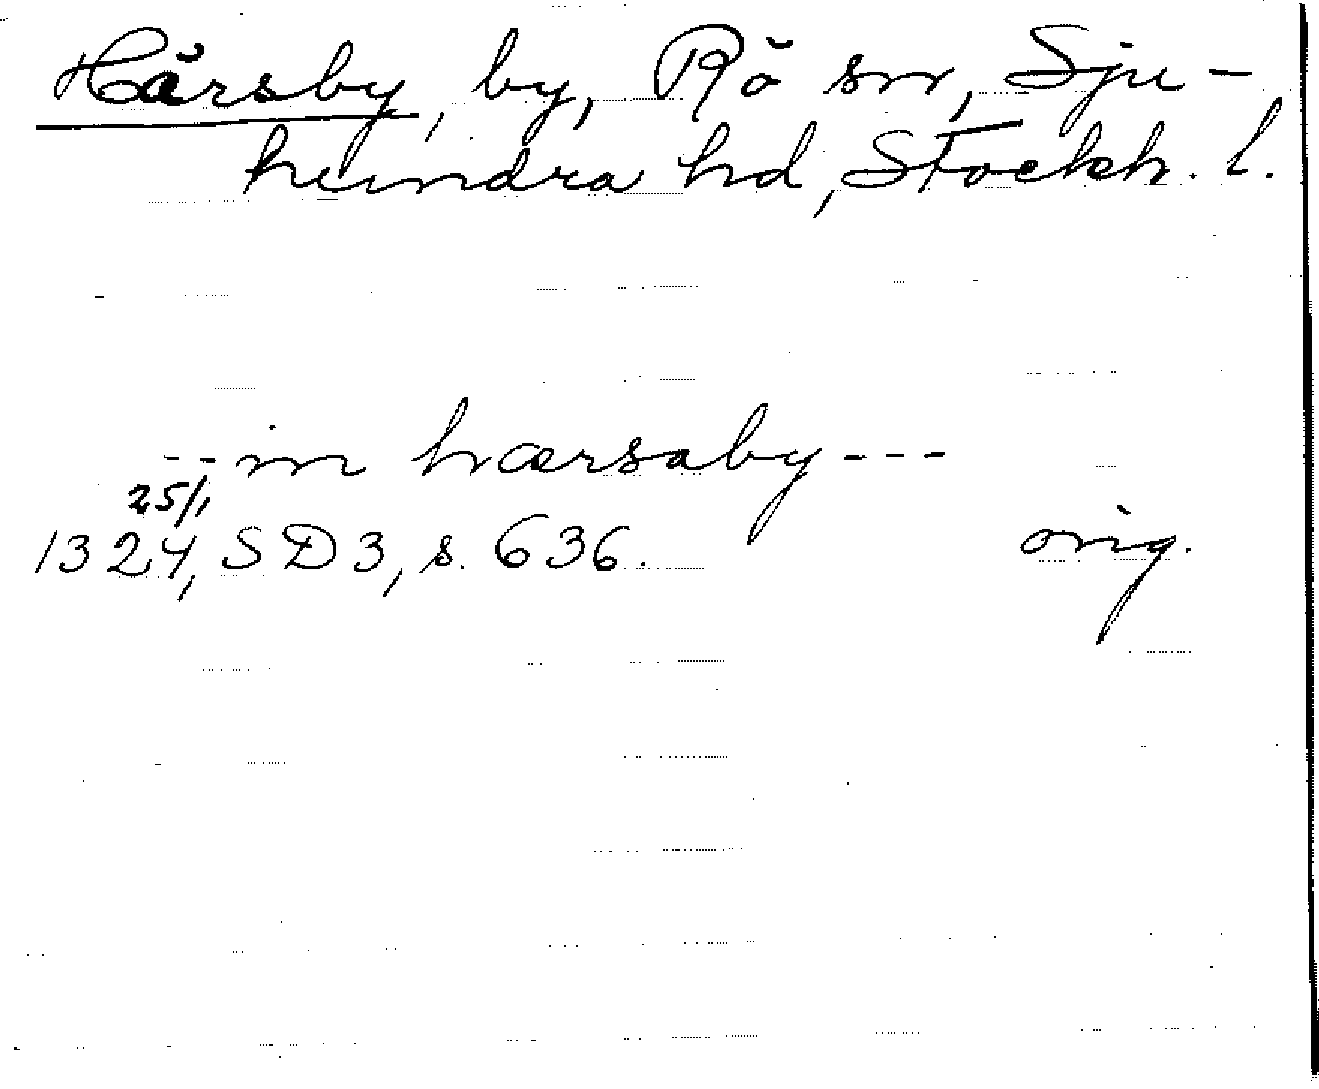 Härsby, by, Rö sn, Sju-
hundra hd, Stockh. l.
--in hærsaby---
25/1
1324, SD3, s. 636. orig.